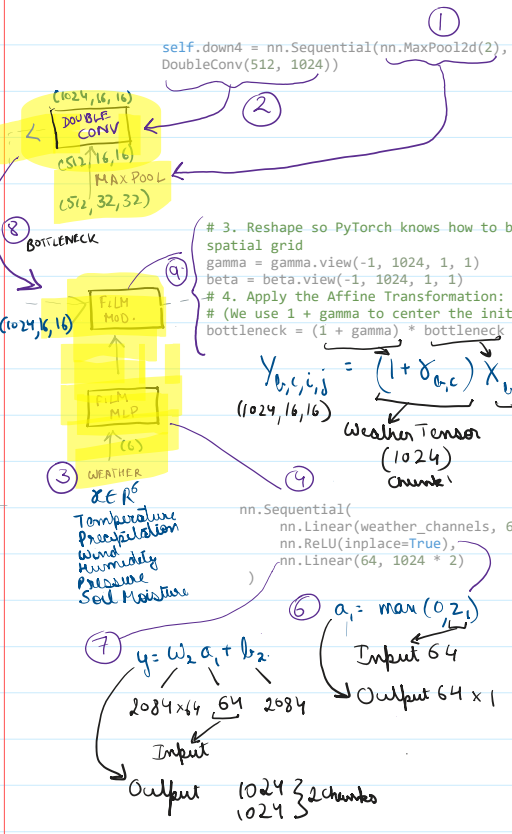 ①
self.down4 = nn.Sequential(nn.MaxPool2d(2),
DoubleConv(512, 1024))
②
(1024,16,16)
DOUBLE
CONV
(512,16,16)
MAXPOOL
(512, 32,32)
⑧
BOTTLENECK
⑨
# 3. Reshape so PyTorch knows how to b
spatial grid
gamma = gamma.view(-1, 1024, 1, 1)
beta = beta.view(-1, 1024, 1, 1)
# 4. Apply the Affine Transformation:
# (We use 1 + gamma to center the init
bottleneck = (1 + gamma) * bottleneck
FiLM
MOD.
(1024,16,16)
Y_{b,c,i,j} = (1+γ_{b,c}) X_b
(1024,16,16)
Weather Tensor
(1024)
Chunk 1
FILM
MLP
(6)
③ WEATHER
x ∈ R⁶
Temperature
Precipitation
Wind
Humedety
Pressure
Soil Moisture
④
nn.Sequential(
nn.Linear(weather_channels, 6
nn.ReLU(inplace=True),
nn.Linear(64, 1024 * 2)
)
⑥ a₁ = max(0,z₁)
Input 64
Output 64 x 1
⑦ y = W₂ a₁ + b₂
2084x64 64 2084
Input
Output 1024
1024 } 2 chunks